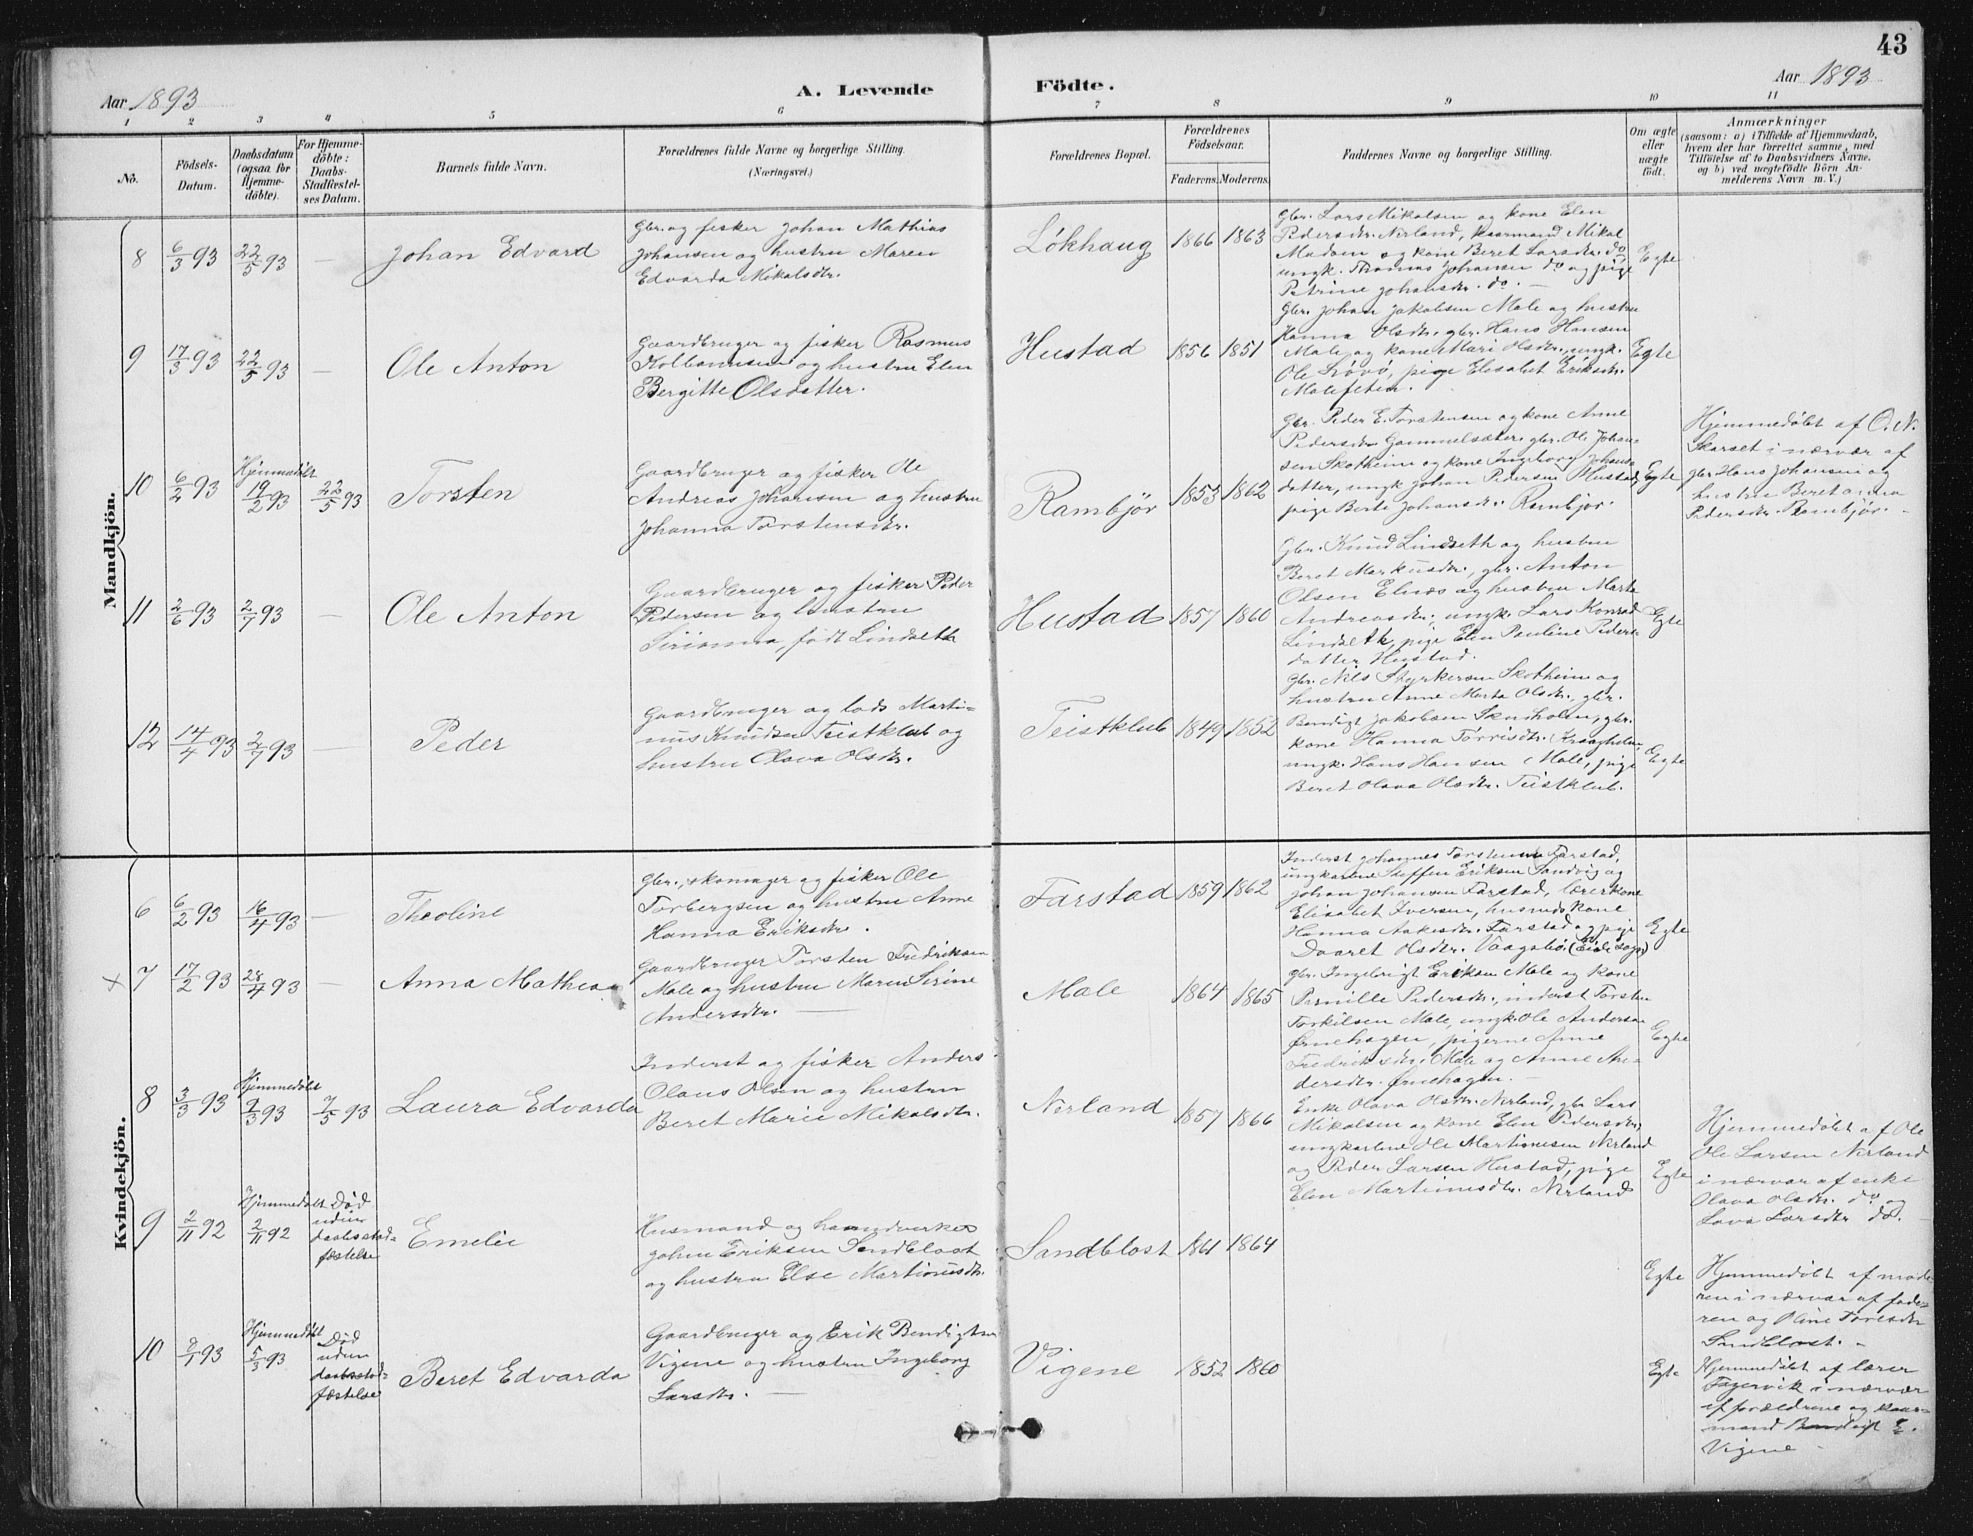 43
Aar 1893
A. Levende Födte.
Aar 1893
1 2 3 4 5 6 7 8 9 10 11
No.
Födsels-Datum.
Daabsdatum (ogsaa for Hjemme-döbte).
For Hjemme-döbte: Daabs-Stadfæstel-ses Datum.
Barnets fulde Navn.
Forældrenes fulde Navne og borgerlige Stilling.
(Næringsvei.)
Forældrenes Bopæl.
Forældrenes Födselsaar.
Faderens. Moderens.
Faddernes Navne og borgerlige Stilling.
Om ægte eller uægte födt.
Anmærkninger
(saasom: a) i Tilfælde af Hjemmedaab,
hvem der har forrettet samme, med
Tilföielse af to Daabsvidners Navne.
og b) ved uægtefödte Börn An-
melderens Navn m. V.)
Mandkjön.
8 6/3 93 22/5 93 — Johan Edvard
Gbr. og fisker Johan Mathias
Johansen og hustru Maren
Edvarda Mikalsdtr.
Løkhaug 1866 1863
Gbr. Lars Mikalsen og kone Elen
Pedersdtr. Nerland, kaarmand Mikal
Madsen og kone Beret Larsdtr. do,
ungk. Thomas Johansen do og pige
Petrine Johansdtr. do. —
Egte
9 17/3 93 22/5 93 — Ole Anton
Gaardbruger og fisker Rasmus
Kolbeinsen og hustru Elen
Bergitte Olsdatter.
Hustad 1856 1851
Gbr. Johan Jakobsen Male og hustru
Hanna Olsdtr. gbr. Hans Hansen
Male og kone Mari Olsdtr., ungk.
Ole, pige Elisabet Eriksdtr.
Malefeten.
Egte
10 6/2 93 Hjemmedøbt 19/2 93 22/5 93 Torsten
Gaardbruger og fisker Ole
Andreas Johansen og hustru
Johanna Torstensdtr.
Rambjør 1853 1862
Gbr. Peder E. Torstensen og kone Anne
Pedersdtr. Gammelsæter, gbr. Ole Johan-
sen Skotheim og kone Ingeborg Johans-
datter, ungk. Johan Pedersen Hustad,
pige Berte Johansdtr. Rambjør.
Egte
Hjemmedøbt af O. N.
Skarset i nærvær af
gbr. Hans Johansen og
hustru Beret Anna
Pedersdtr. Rambjør. —
11 2/6 93 2/7 93 — Ole Anton
Gaardbruger og fisker Peder
Pedersen og hustru
Sirianna, født Lindseth
Hustad 1857 1860
Gbr. Knud Lindseth og hustru
Beret Markusdtr., gbr. Anton
Olsen Elnæs og hustru Marta
Andreasdtr., ungk. Lars Konrad
Lindseth, pige Elen Pauline Peders-
datter Hustad.
Egte
12 14/4 93 2/7 93 — Peder
Gaardbruger og lods Marti-
nus Knudsen Teistklub og
hustru Olava Olsdtr.
Teistklub 1849 1852
Gbr. Nils Styrkersen Skotheim og
hustru Anne Marta Olsdtr. gbr.
Bendigt Jakobsen Skusholm, gbr.
kone Hanna Tørrisdtr. Kraagholm,
ungk. Hans Hansen Male, pige
Beret Olava Olsdtr. Teistklub.
Egte
Kvindekjön.
6 6/2 93 16/4 93 — Theoline
Gbr., skomager og fisker Ole
Torbergsen og hustru Anne
Hanna Eriksdtr.
Farstad 1859 1862
Inderst Johannes Torstensen Farstad,
ungkarlene Steffen Eriksen Sandvig og
Johan Johansen Farstad, lærerkone
Elisabet Iversen, husmdskone
Hanna Aakesdtr. Farstad og pige
Daaret Olsdtr. Vaagsbø (Eide sogn)
Egte
× 7 17/2 93 28/4 93 — Anna Mathea
Gaardbruger Torsten Fredriksen
Male og hustru Maren Sirine
Andersdtr. —
Male 1864 1865
Gbr. Ingebrigt Eriksen Male og kone
Pernille Pedersdtr., inderst Torsten
Torkilsen Male, ungk. Ole Andersen
Ørnehagen, pigerne Anne
Fredriksdtr. Male og Anne An-
dersdtr. Ørnehagen. —
Egte
8 3/3 93 Hjemmedøbt 9/3 93 7/5 93 Laura Edvarda
Inderst og fisker Anders
Olaus Olsen og hustru
Beret Marie Mikalsdtr.
Nerland 1857 1866
Enke Olava Olsdtr. Nerland, gbr. Lars
Mikalsen og kone Elen Pedersdtr,
ungkarlene Ole Martinusen Nerland
og Peder Larsen Hustad, pige
Elen Martinusdtr. Nerland
Egte
Hjemmedøbt af Ole
Ole Larsen Nerland
i nærvær af enke
Olava Olsdtr. do og
Lava Larsdtr. do. —
9 2/11 92 Hjemmedøbt 2/11 92 Død uden daabsstad-fæstelse Emelie
Husmand og haandverker
Johan Eriksen Sandblost
og hustru Else Martinusdtr.
Sandblost 1861 1864
Egte
Hjemmedøbt af mode-
ren i nærvær af fade-
ren og Oline Toresdtr
Sandblost. —
10 2/1 93 Hjemmedøbt 5/3 93 Død uden daabsstad-fæstelse Beret Edvarda
Gaardbruger og Erik Bendigtsen
Vigene og hustru Ingeborg
Larsdtr. —
Vigene 1852 1860
Egte
Hjemmedøbt af lærer
Fagervik i nærvær
af forældrene og kaar-
mand Bendigt E.
Vigene —